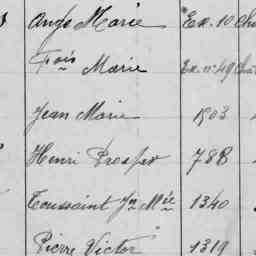 Ange Marie Ex. 10 Cha
Fois Marie Ex. nº 49 Cha
Jean Marie 1903
Henri Prosper 788
Toussaint Jn Mie 1340
Pierre Victor 1319